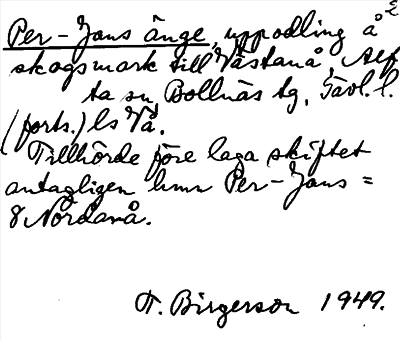 Per-Jans änge, uppodling å 2
skogsmark till Västanå, Alf
ta sn, Bollnäs tg, Gävl. l.
(forts.) ls Vå.
Tillhörde före laga skiftet
antagligen hmn Per-Jans =
8 Nordanå.
T. Birgerson 1949.